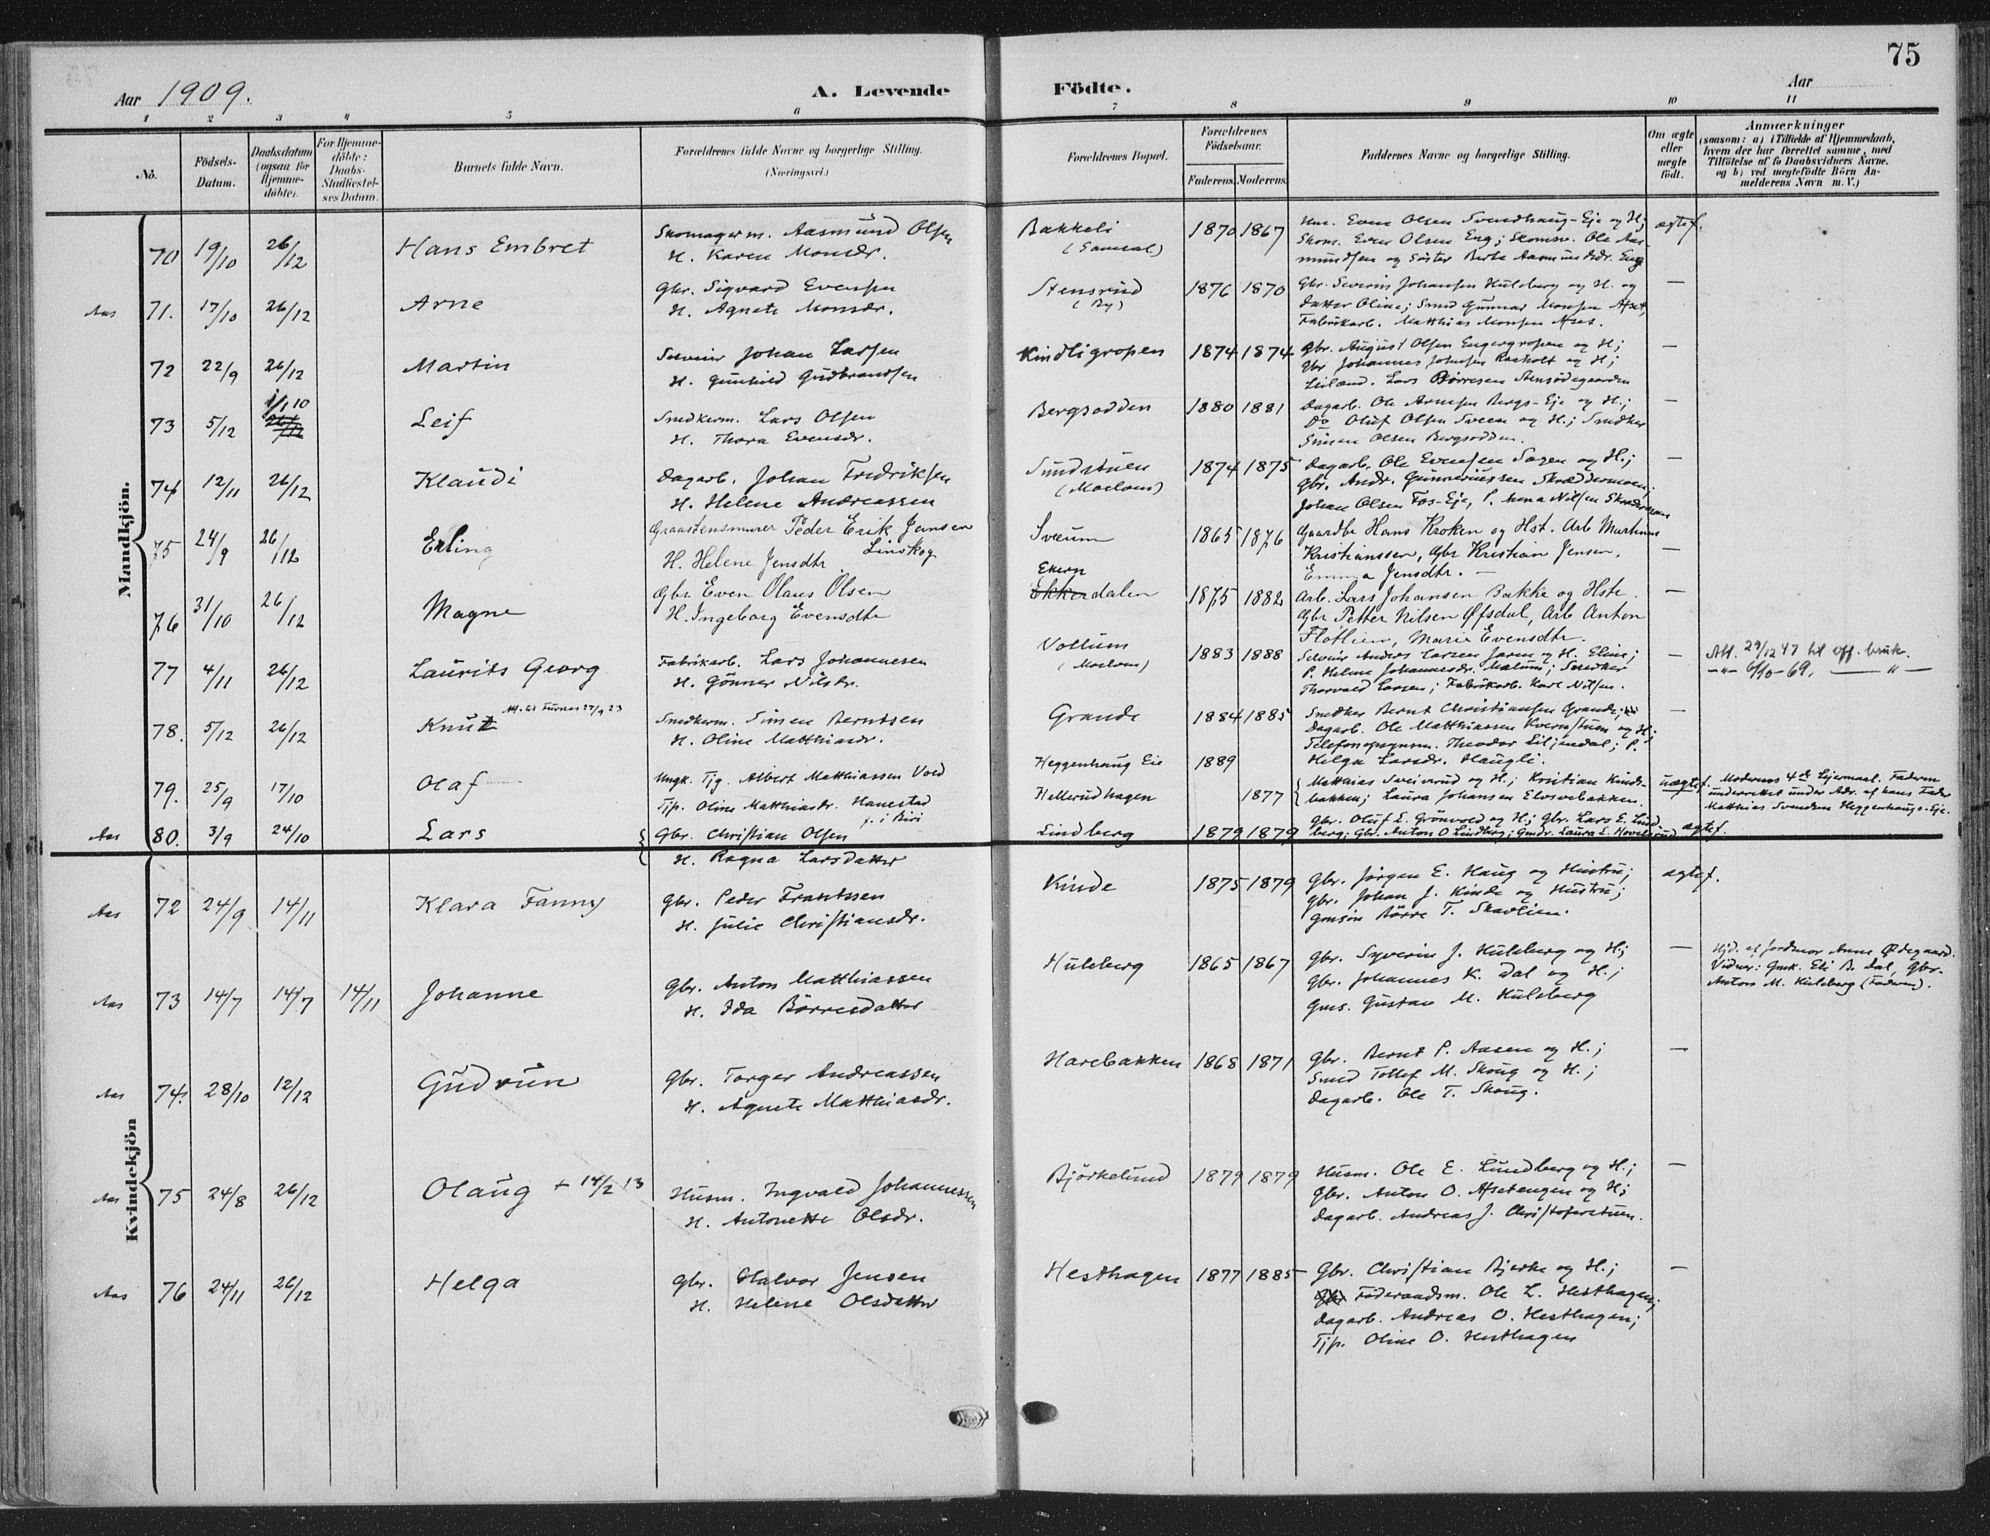 75
Aar 1909. A. Levende Födte. Aar
1 2 3 4 5 6 7 8 9 10 11
No. Födsels-Datum. Daabsdatum (ogsaa for Hjemme-döbte). For Hjemme-döbte: Daabs-Stadfæstel-ses Datum. Barnets fulde Navn. Forældrenes fulde Navne og borgerlige Stilling. (Næringsvei.) Forældrenes Bopæl. Forældrenes Födselsaar. Faderens. Moderens. Faddernes Navne og borgerlige Stilling. Om ægte eller uægte födt. Anmærkninger (saasom: a) i Tilfælde af Hjemmedaab, hvem der har forrettet samme, med Tilföielse af to Daabsvidners Navne, og b) ved uægtefödte Börn An-melderens Navn m. V.)
Mandkjön.
70 19/10 26/12 Hans Embret Skomagerm. Aasmund Olsen Bakkeli 1870 1867 Hm. Even Olsen Svendhaug-Eje og H; ægtef.
H. Karen Monsdr. (Samsal) Skom. Even Olsen Eng; Skomsv. Ole Aas-
mundsen og Söster Berte Aasmundsdr. Eng
Aas 71. 17/10 26/12 Arne Gbr. Sigvard Evensen Stensrud 1876 1870 Gbr. Severin Johansen Hulsberg og H. og —
H. Agnete Monsdr. (By) Datter Oline; Smed Gunnar Monsen Afset,
Fabrikarb. Matthias Monsen Afset.
72 22/9 26/12 Martin Selveier Johan Larsen Kindligropen 1874 1874 Gbr. August Olsen Engergropen og H; —
H. Gunhild Gudbrandsen Gbr Johannes Johnsen Raaholt og H;
Leiland. Lars Börresen Stensödegaarden
73 5/12 1/1 10 26/12 Leif Snedkerm. Lars Olsen Bergsodden 1880 1881 Dagarb. Ole Arnesen Bergs-Eje og H.; —
H. Thora Evensdr. Do Oluf Olsen Sveen og H.; Snedker
Simen Olsen Bergsodden.
74 12/11 26/12 Klaudi Dagarb. Johan Fredriksen Sundstuen 1874 1875 Dagarb. Ole Evensen Sagen og H.; —
H. Helene Andreassen (Moelven) Gbr. Andr. Gunneriussen Skræddermoen;
Johan Olsen Fos-Eje, P. Anna Nilsen
75 24/9 26/12 Erling Graastensmurer Peder Erik Jensen Sveum 1865 1876 Gaardbr Hans Kroken og Hst. Arb Martinus
Linskog
H. Helene Jensdtr Kristianssen, Gbr Kristian Jensen, —
Emma Jensdtr. —
76 31/10 26/12 Magne Gbr Even Olaus Olsen Ekern Ekkerdalen 1875 1882 Arb. Lars Johansen Bakke og Hstr. —
H. Ingeborg Evensdtr Gbr Petter Nilsen Øfsdal, Arb Anton
Flotlien, Marie Evensdtr.
77 4/11 26/12 Laurits Georg Fabrikarb. Lars Johannesen Vollum 1883 1888 Selveier Anders Larsen Jaren og H. Eline; — Att. 29/12 47 til off. bruk.
H. Gönner Nilsdr. (Moelven) P. Helene Johannesdr. Malum; Snedker —"— 6/10-69. —"—
Thorvald Larsen; Fabrikarb. Karl Nilsen.
Att. til Furnes 27/9 23
78. 5/12 26/12 Knut Snedkerm. Simen Berntsen Grande 1884 1885 Snedker Bernt Christiansen Grande; —
H. Oline Matthiasdr. Dagarb. Ole Matthiassen Kvernstuen og H;
Telefonopsynsm. Theodor Liljendal; P.
Helga Larsdr. Haugli.
79. 25/9 17/10 Olaf Ungk. Tjg. Albert Matthiassen Vold Heggenhaug Eie 1889 Matthias Sveiverud og H.; Kristian Kinds- uægtef. Moderens 4de Leiermaal. Faderen
Tjp. Oline Matthiasdr. Hanestad Hellerudhagen 1877 bakken; Laura Johansen Elvsvebakken. underrettet under Adr. af hans Fader
f. i Biri Matthias Svendsen Heggenhaugs-Eje.
Aas 80. 3/9 24/10 Lars Gbr. Christian Olsen Lindberg 1879 1879 Gbr. Oluf E. Grönvold og H; Gbr. Lars E. Lund- ægtef.
H. Ragna Larsdatter berg; Gbr. Anton O Lindberg; Gmdr. Laura E. Hovelsrud
Kvindekjön
Aas 72 24/9 14/11 Klara Fanny Gbr. Peder Frantssen Kinde 1875 1879 Gbr. Jörgen E. Haug og Hustru; ægtef.
H. Julie Christiansdr. Gbr. Johan J. Kinde og Hustru;
Gmsön Börre T. Skavlien.
Aas 73 14/7 14/7 14/11 Johanne Gbr. Anton Matthiassen Hulsberg 1865 1867 Gbr. Syverin J. Hulsberg og H; — Hjd. af Jordmor Anne Ødegaard.
H. Ida Börresdatter Gbr. Johannes K. Dal og H.; Vidner: Gmk. Eli B. Dal, Gbr.
Gms. Gustav M. Hulsberg Anton M. Hulsberg (Faderen).
Aas 74. 28/10 12/12 Gudrun Gbr. Torger Andreassen Harebakken 1868 1871 Gbr. Bernt P. Aasen og H.; —
H. Agnete Matthiasdr. Smed Tollef M. Skoug og H.;
Dagarb. Ole T. Skoug.
Aas 75 24/8 26/12 Olaug + 14/2 13 Husm. Ingvald Johannessen Björkelund 1879 1879 Husm. Ole E. Lundberg og H.; —
H. Antonette Olsdr. Gbr. Anton O. Afsetengen og H;
Dagarb. Andreas J. Christoferstuen.
Aas 76 24/11 26/12 Helga Gbr. Halvor Jensen Hesthagen 1877 1885 Gbr. Christian Bjerke og H.; —
H. Helene Olsdatter Föderaadsm. Ole L. Hesthagen;
Dagarb. Andreas O. Hesthagen;
Tjp. Oline O. Hesthagen